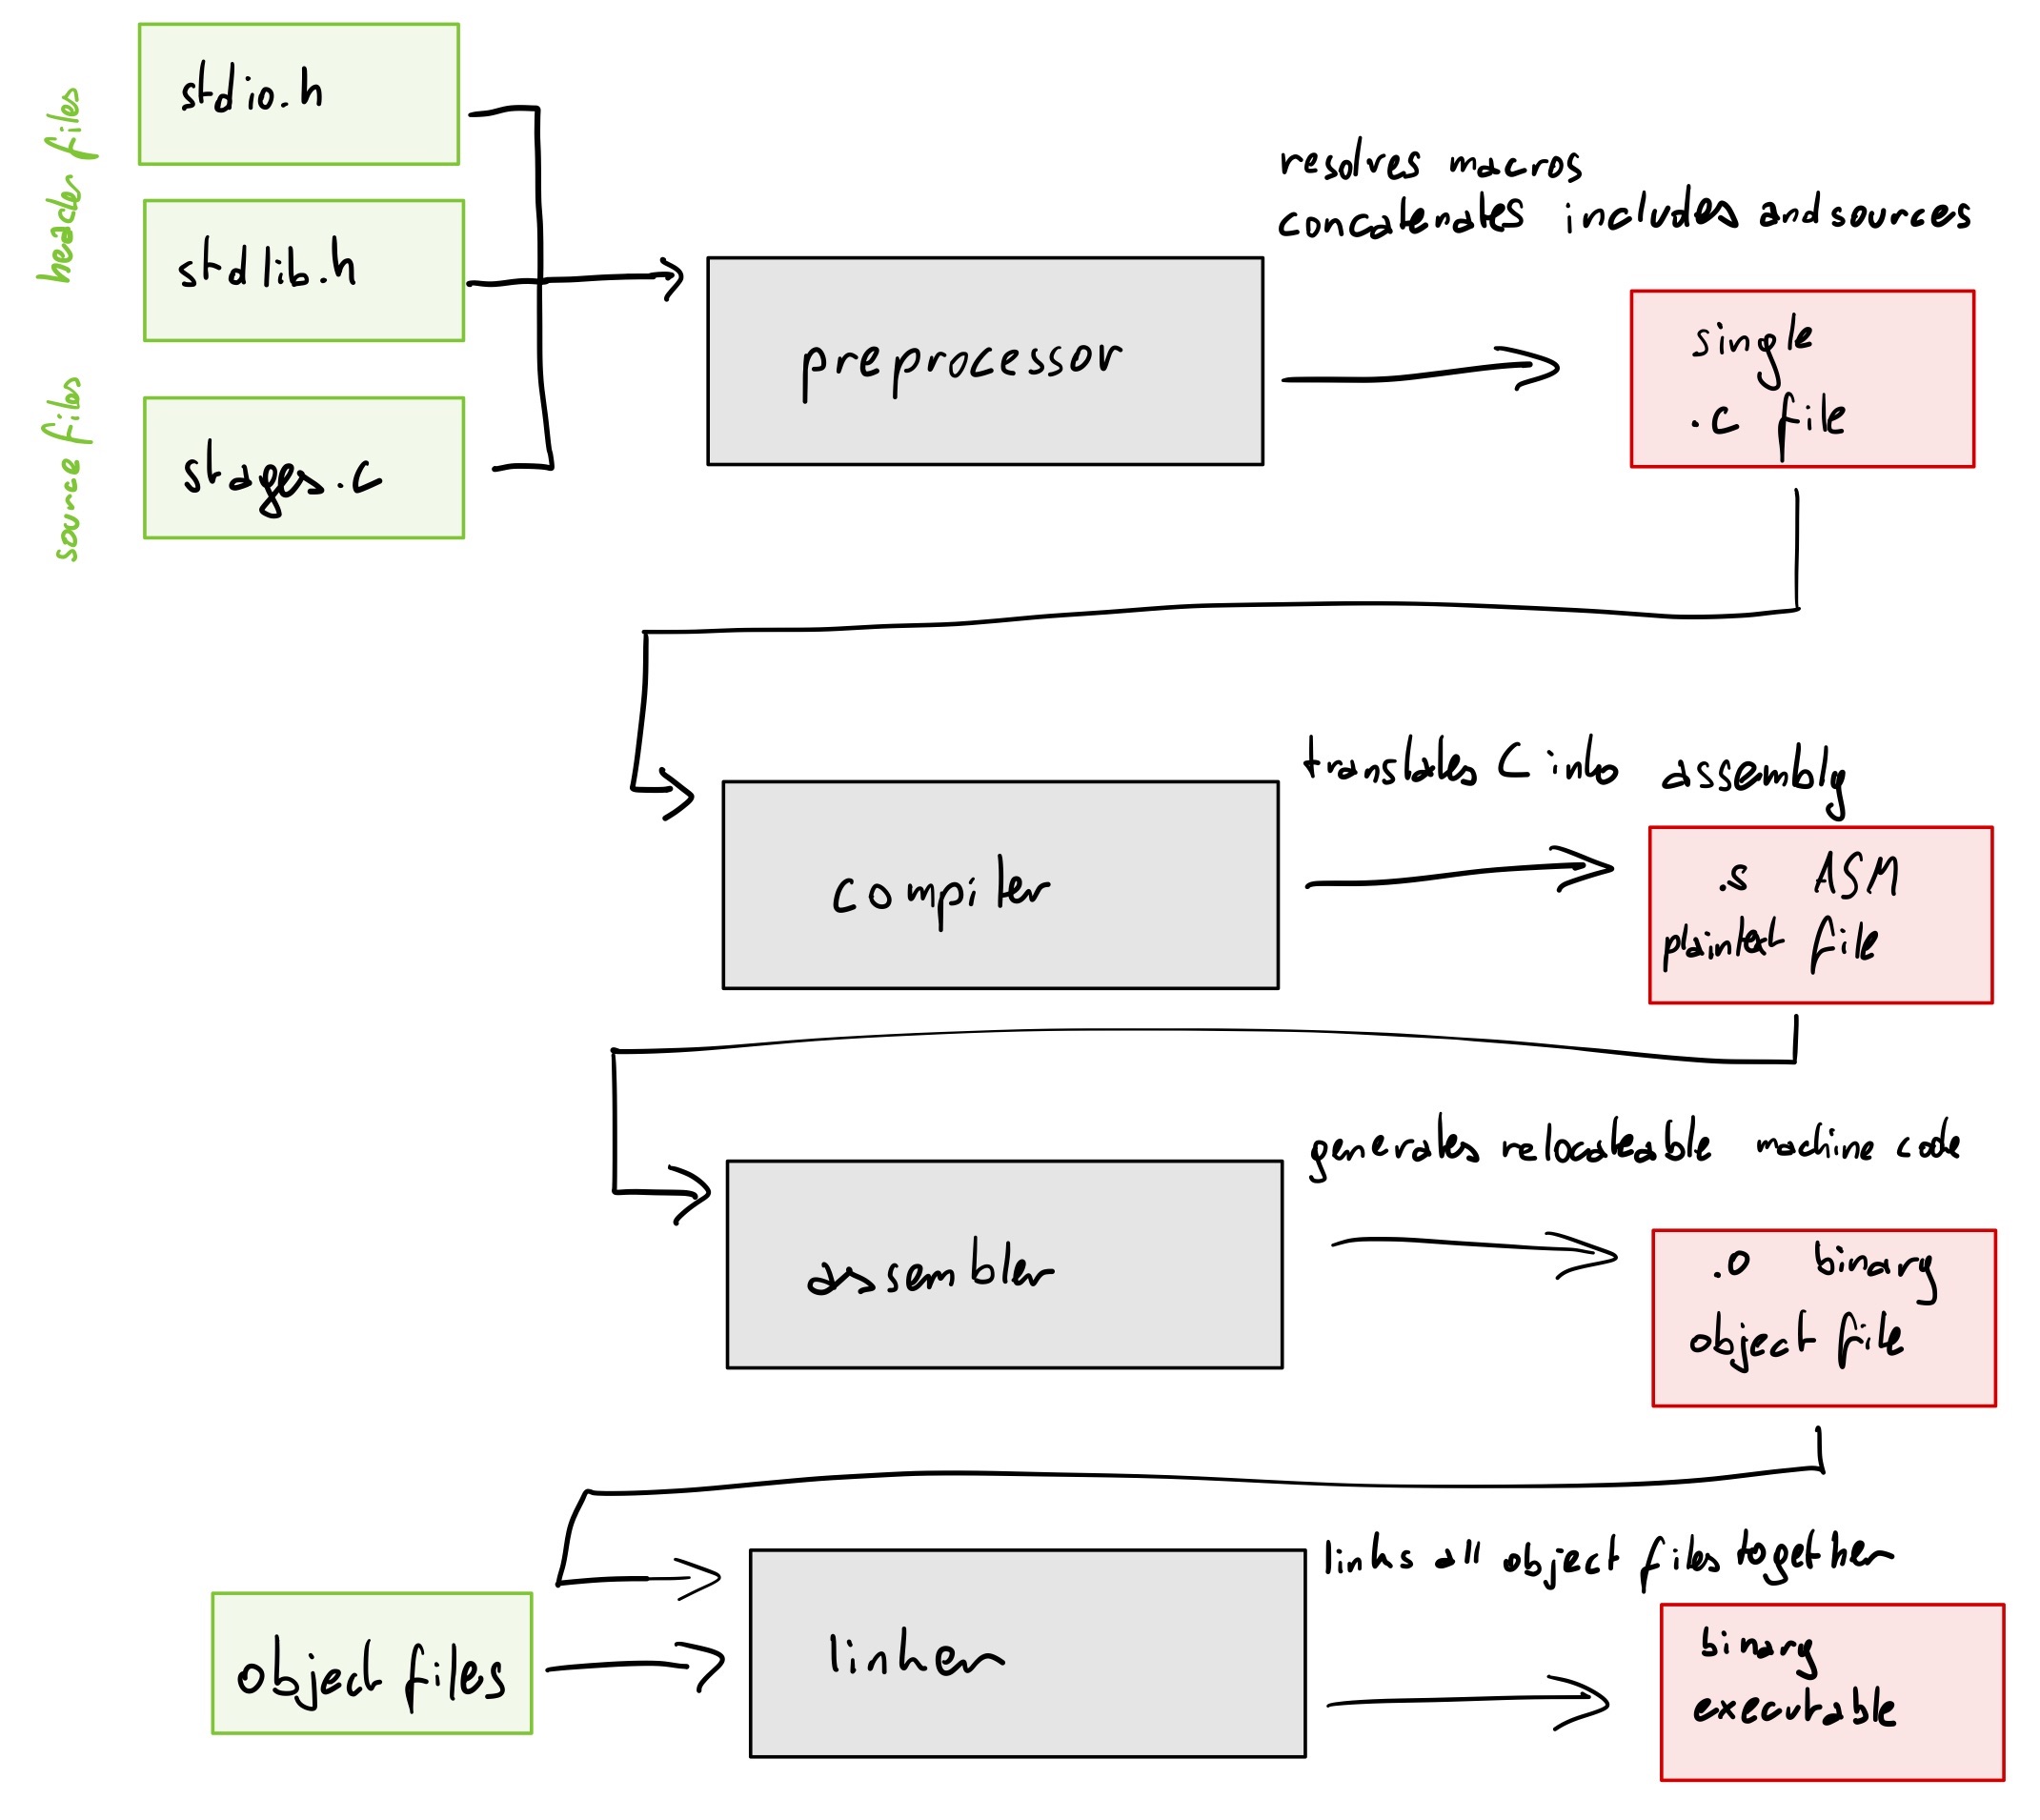 header files
stdio.h
stdlib.h
source files
stages.c
preprocessor
resolves macros
concatenates includes and sources
single
.c file
compiler
translates C into assembly
.s ASM
plaintext file
assembler
generates relocateable machine code
.o binary
object file
object files
linker
links all object files together
binary
executable